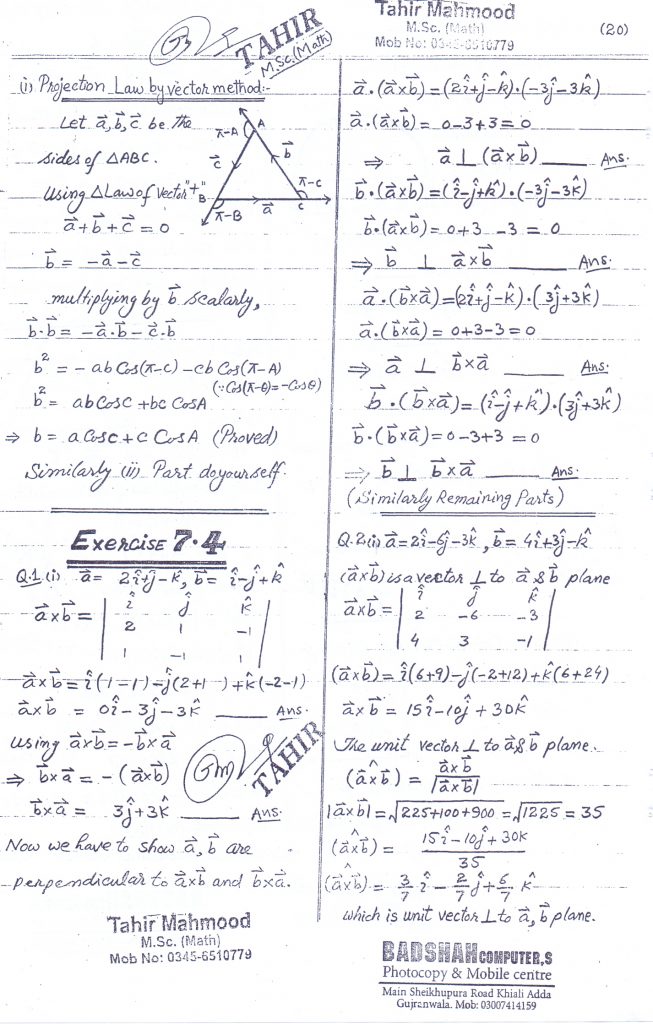 Tahir Mahmood
M.Sc. (Math)
Mob No: 0345-6510779
(20)
TAHIR
M.Sc.(Math)
(i) Projection Law by vector method:-
Let a⃗, b⃗, c⃗ be the
sides of △ABC.
Using △Law of vector "+"
a⃗ + b⃗ + c⃗ = 0
b⃗ = -a⃗ - c⃗
π-A A
c⃗ b⃗
π-C
B a⃗ C
π-B
multiplying by b⃗ scalarly,
b⃗·b⃗ = -a⃗·b⃗ - c⃗·b⃗
b² = -ab Cos(π-C) - cb Cos(π-A)
(∵ Cos(π-θ) = -Cosθ)
b² = ab CosC + bc CosA
⇒ b = a CosC + c CosA (Proved)
Similarly (ii) Part do yourself.
Exercise 7.4
Q.1 (i) a⃗ = 2î+ĵ-k̂, b⃗ = î-ĵ+k̂
a⃗×b⃗ = | î ĵ k̂ |
| 2 1 -1 |
| 1 -1 1 |
a⃗×b⃗ = î(1-1) - ĵ(2+1) + k̂(-2-1)
a⃗×b⃗ = 0î - 3ĵ - 3k̂ ____ Ans.
Using a⃗×b⃗ = -b⃗×a⃗
⇒ b⃗×a⃗ = -(a⃗×b⃗)
b⃗×a⃗ = 3ĵ + 3k̂ ____ Ans.
TAHIR
Now we have to show a⃗, b⃗ are
perpendicular to a⃗×b⃗ and b⃗×a⃗.
Tahir Mahmood
M.Sc. (Math)
Mob No: 0345-6510779
a⃗·(a⃗×b⃗) = (2î+ĵ-k̂)·(-3ĵ-3k̂)
a⃗·(a⃗×b⃗) = 0-3+3 = 0
⇒ a⃗ ⊥ (a⃗×b⃗) ____ Ans.
b⃗·(a⃗×b⃗) = (î-ĵ+k̂)·(-3ĵ-3k̂)
b⃗·(a⃗×b⃗) = 0+3-3 = 0
⇒ b⃗ ⊥ a⃗×b⃗ ____ Ans.
a⃗·(b⃗×a⃗) = (2î+ĵ-k̂)·(3ĵ+3k̂)
a⃗·(b⃗×a⃗) = 0+3-3 = 0
⇒ a⃗ ⊥ b⃗×a⃗ ____ Ans.
b⃗·(b⃗×a⃗) = (î-ĵ+k̂)·(3ĵ+3k̂)
b⃗·(b⃗×a⃗) = 0-3+3 = 0
⇒ b⃗ ⊥ b⃗×a⃗ ____ Ans.
(Similarly Remaining Parts)
Q.2(i) a⃗ = 2î-6ĵ-3k̂, b⃗ = 4î+3ĵ-k̂
(a⃗×b⃗) is a vector ⊥ to a⃗ & b⃗ plane
a⃗×b⃗ = | î ĵ k̂ |
| 2 -6 -3 |
| 4 3 -1 |
(a⃗×b⃗) = î(6+9) - ĵ(-2+12) + k̂(6+24)
a⃗×b⃗ = 15î - 10ĵ + 30k̂
The unit vector ⊥ to a⃗ & b⃗ plane.
(a×b)^ = a⃗×b⃗ / |a⃗×b⃗|
|a⃗×b⃗| = √225+100+900 = √1225 = 35
(a⃗×b⃗)^ = 15î-10ĵ+30k̂ / 35
(a⃗×b⃗)^ = 3/7 î - 2/7 ĵ + 6/7 k̂
which is unit vector ⊥ to a⃗, b⃗ plane.
BADSHAH COMPUTER,S
Photocopy & Mobile centre
Main Sheikhupura Road Khiali Adda
Gujranwala. Mob: 03007414159